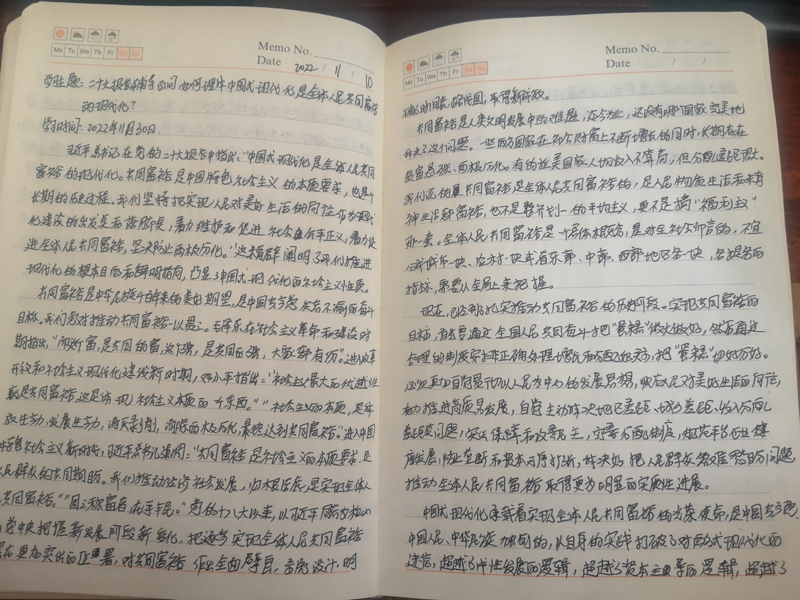 Mo Tu We Th Fr Sa Su
Memo No.
Date 2022 / 11 / 10
学习主题：二十大报告辅导百问 如何理解中国式现代化是全体人民共同富裕
的现代化？
学习时间：2022年11月30日.
习近平总书记在党的二十大报告中指出："中国式现代化是全体人民共同
富裕的现代化。共同富裕是中国特色社会主义的本质要求，也是个
长期的历史过程。我们坚持把实现人民对美好生活的向往作为现代
化建设的出发点和落脚点，着力维护和促进社会公平正义，着力促
进全体人民共同富裕，坚决防止两极分化。"这一阐明了我们推进
现代化的根本目的和鲜明指向，凸显中国式现代化的社会主义性质。
共同富裕是中华儿女千百年来的美好期望，是中国共产党矢志不渝的奋斗
目标。我们党对推动共同富裕一以贯之。毛泽东在社会主义革命和建设时
期指出，"而这个富，是共同的富，这个强，是共同的强，大家都有份。"进入改革
开放和社会主义现代化建设新时期，邓小平指出："社会主义最大的优越性
就是共同富裕，这是体现社会主义本质的一个东西。""社会主义的本质，是解
放生产力，发展生产力，消灭剥削，消除两极分化，最终达到共同富裕。"进入中国
特色社会主义新时代，习近平总书记强调："共同富裕是社会主义的本质要求，是
人民群众的共同期盼。我们推动经济社会发展，归根结底，是要实现全体人民
共同富裕。""国之称富者，在乎丰民。"党的十八大以来，以习近平同志为核心的
党中央把握新发展阶段新变化，把逐步实现全体人民共同富裕
在更加突出的位置，对共同富裕作出全面擘画、 设计，明
Memo No.
Date / /
确时间表、路线图，取得新成效。
共同富裕是人类文明发展中的难题，迄今为止，还没有哪个国家完美地
解决了这个问题。一些西方国家在社会财富上不断增长的同时，长期存在
贫富悬殊、两极分化。有的拉美国家人均收入不算高，但分配差距很大。
我们说的共同富裕是全体人民共同富裕的，是人民物质生活和精
神生活都富裕，也不是整齐划一的平均主义，更不是搞"福利主义"
那一套。全体人民共同富裕是一个总体概念，是对全社会而言的，不宜
分成城市一块、农村一块，或者东部、中部、西部地区各一块，各提各的
指标，要从全局上来把握。
现在，已经到了扎实推动共同富裕的历史阶段。实现共同富裕的
目标，首先要通过全国人民共同奋斗把"蛋糕"做大做好，然后通过
合理的制度安排正确处理增长和分配的关系，把"蛋糕"切好分好。
必须更加自觉贯彻以人民为中心的发展思想，顺应人民对美好生活的向往，
着力推进高质量发展，自觉主动解决地区差距、城乡差距、收入分配
差距问题，突出保障和改善民生，完善分配制度，
康发展，防止垄断和资本无序扩张，解决好人民群众急难愁盼问题，
推动全体人民共同富裕取得更为明显的实质性进展。
中国式现代化承载着实现全体人民共同富裕的光荣使命，是中国共产党、
中国人民、中华民族 的，以自身的实践打破了对西式现代化的
迷信，超越了 发展的逻辑，超越了资本主导的逻辑，超越了